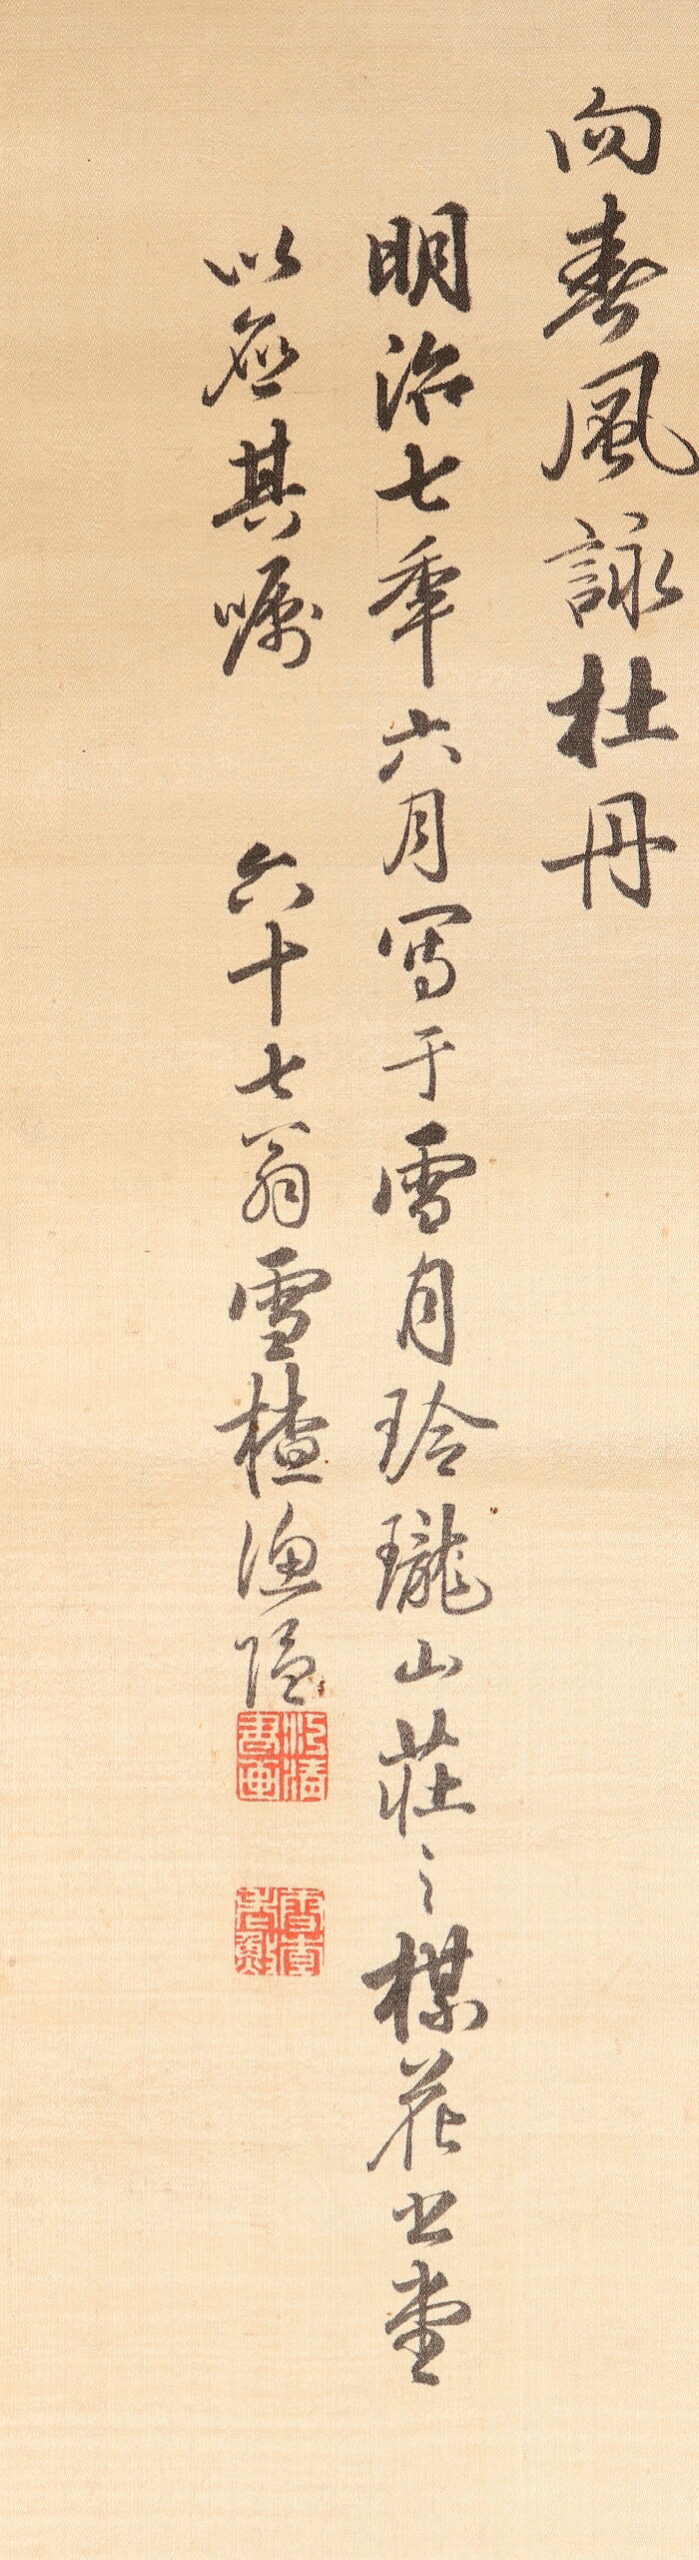 向春風詠杜丹
明治七秊六月寫于雪月玲瓏山莊之楳花書堂
以應其嘱 六十七翁雪楂漁隠